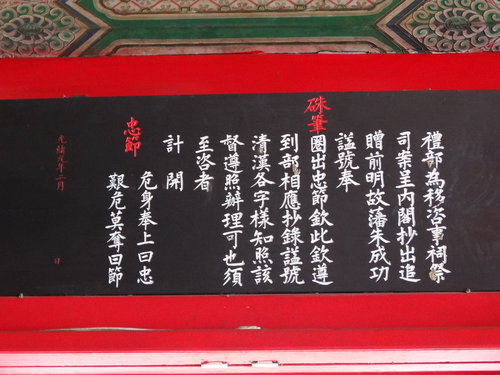 禮部為移咨事祠祭
司案呈內閣抄出追
贈前明故藩朱成功
諡號奉
硃筆圈出忠節欽此欽遵
到部相應抄錄諡號
清漢各字樣知照該
督遵照辦理可也須
至咨者
計開
忠節
危身奉上曰忠
艱危莫奪曰節
光緒元年二月
日